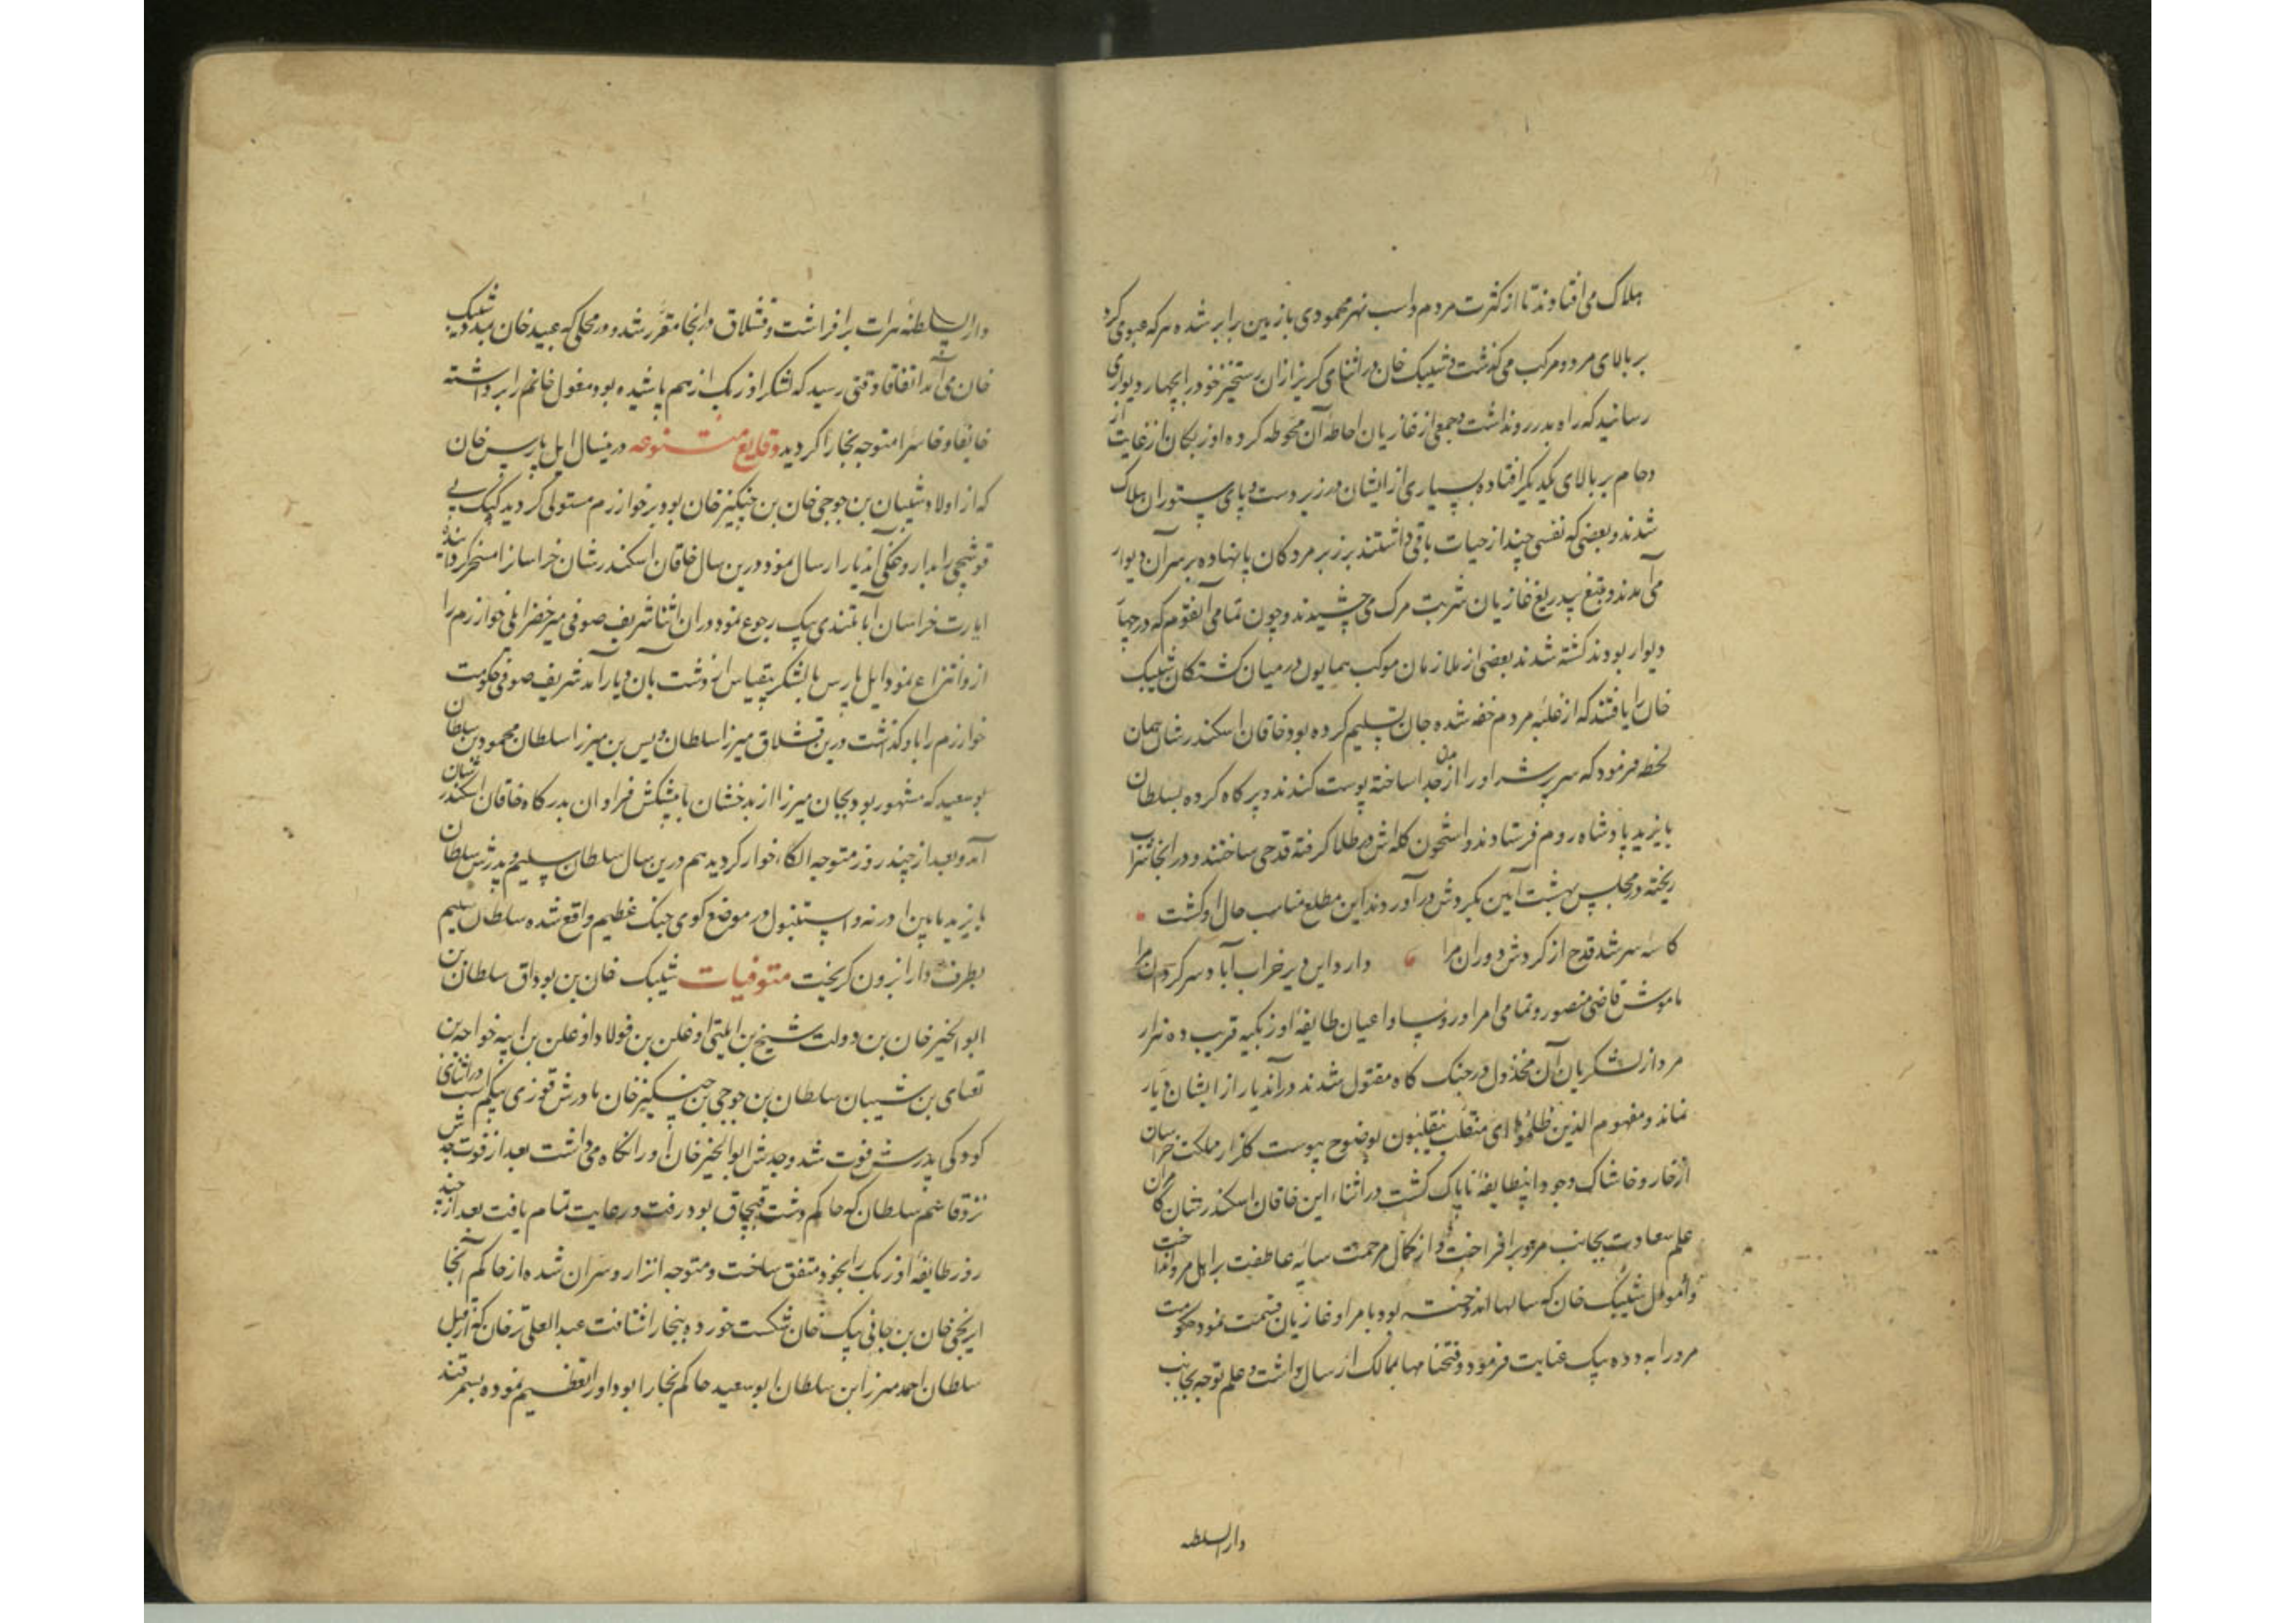 هلاک می افتادند تا از کثرت مردم و اسب نهر محمودی با زمین برابر شده هر که عبور می کرد
بر بالای مرد و مرکب می گذشت و شیبک خان در اثنای گریز از ان رستخیز خود را بچهار دیواری
رسانید که راه بدر رو نداشت و جمعی از غازیان احاطه آن محوطه کرده اوزبکان از غایت
دحام بر بالای یکدیگر افتاده بسیاری از ایشان در زیر دست و پای ستوران هلاک
شدند و بعضی که نفسی چند از حیات باقی داشتند بر زبر مردکان پا نهاده بر سر آن دیوار
می آمدند و بتیغ بیدریغ غازیان شربت مرک می چشیدند و چون تمامی آنقوم که در چهار
دیوار بودند کشته شدند بعضی از ملازمان موکب همایون در میان کشتکان شیبک
خان را یافتند که از غلبه مردم خفه شده جان تسلیم کرده بود خاقان اسکندر شان همان
لحظه فرمود که سر پر شر او را از بدن جدا ساخته پوست کندند و پر کاه کرده بسلطان
بایزید پادشاه روم فرستادند و استخوان کله اش در طلا کرفته قدحی ساختند و در انجا شراب
ریخته در مجلس بهشت آیین بکردش در آوردند این مطلع مناسب حال او کشت
کاسه سر شد قدح از کردش دوران مرا دارد این دیر خراب آباد سرکردان مرا
ماموش قاضی منصور و تمامی امرا و روسا و اعیان طایفه اوزبکیه قریب ده هزار
مرد از لشکریان آن مخذول در جنک کاه مقتول شدند در آندیار از ایشان دیار
نماند و مفهوم الذین ظلموا ای منقلب ینقلبون بوضوح پیوست کلزار مملکت خراسان
از خار و خاشاک وجود اینطایفه ناپاک کشت در اثناء این خاقان اسکندر شان کامران
علم سعادت بجانب مرو بر افراخت و از کمال مرحمت سایه عاطفت بر اهل مرو انداخت
و اموال شیبک خان که سالها اندوخته بود بامرا و غازیان قسمت نمود حکومت
مرو را به دده بیک عنایت فرمود و فتحنامها بممالک ارسال داشت و علم توجه بجانب
دار السلطنه
دار السلطنه هرات بر افراشت و قشلاق در انجا مقرر شد و در محلی که عبید خان بمدد شیبک
خان می آمد اتفاقا وقتی رسید که لشکر اوزبک از هم پاشیده بود مغول خانم را برداشته
خایفا و خاسرا متوجه بخارا کردید وقایع متنوعه درینسال ایل پارس خان
که از اولاد شیبان بن جوجی خان بن چنکیز خان بود بر خوارزم مستولی کردید کپک بی
قوشجی را بداروغکی آندیار ارسال نمود درین سال خاقان اسکندر شان خراسان را مسخر کردانیده
ایارت خراسان را به لندی بیک رجوع نمود در ان اثنا شریف صوفی میر خضر ایلی خوارزم را
ازو انتزاع نمود ایل پارس با لشکر بیقیاس از دشت بآن دیار آمد شریف صوفی حکومت
خوارزم را باو کذاشت درین قشلاق میرزا سلطان ویس بن میرزا سلطان محمود بن سلطان
بو سعید که مشهور بود بخان میرزا از بدخشان با پیشکش فراوان بدرکاه خاقان اسکندر شان
آمد و بعد از چند روز متوجه الکاء خوار کردید هم درین سال سلطان سلیم و پدرش سلطان
بایزید مابین ادرنه و استنبول در موضع کوی جنک عظیم واقع شده سلطان سلیم
بطرف دار انرون کریخت متوفیات شیبک خان بن بوداق سلطان بن
ابو الخیر خان بن دولت شیخ بن ایلتی اوغلن بن فولاد اوغلن بن ایبه خواجه بن
تغتای بن شیبان سلطان بن جوجی بن چنکیز خان مادرش قوزی بیکم است در اثنای
کودکی پدرش فوت شد و جدش ابو الخیر خان او را نکاه میداشت بعد از فوت جدش
نزد قاغم سلطان که حاکم دشت قبچاق بود رفت و رعایت تمام یافت بعد از چند
روز طایفه اوزبک را بخود متفق ساخت و متوجه اترار و سران شده از حاکم آنجا
ایرنجی خان بن جانی بیک خان شکست خورده ببخارا شتافت عبد العلی ترخان که از قبل
سلطان احمد میرزا بن سلطان ابو سعید حاکم بخارا بود او را تعظیم نموده بسمرقند